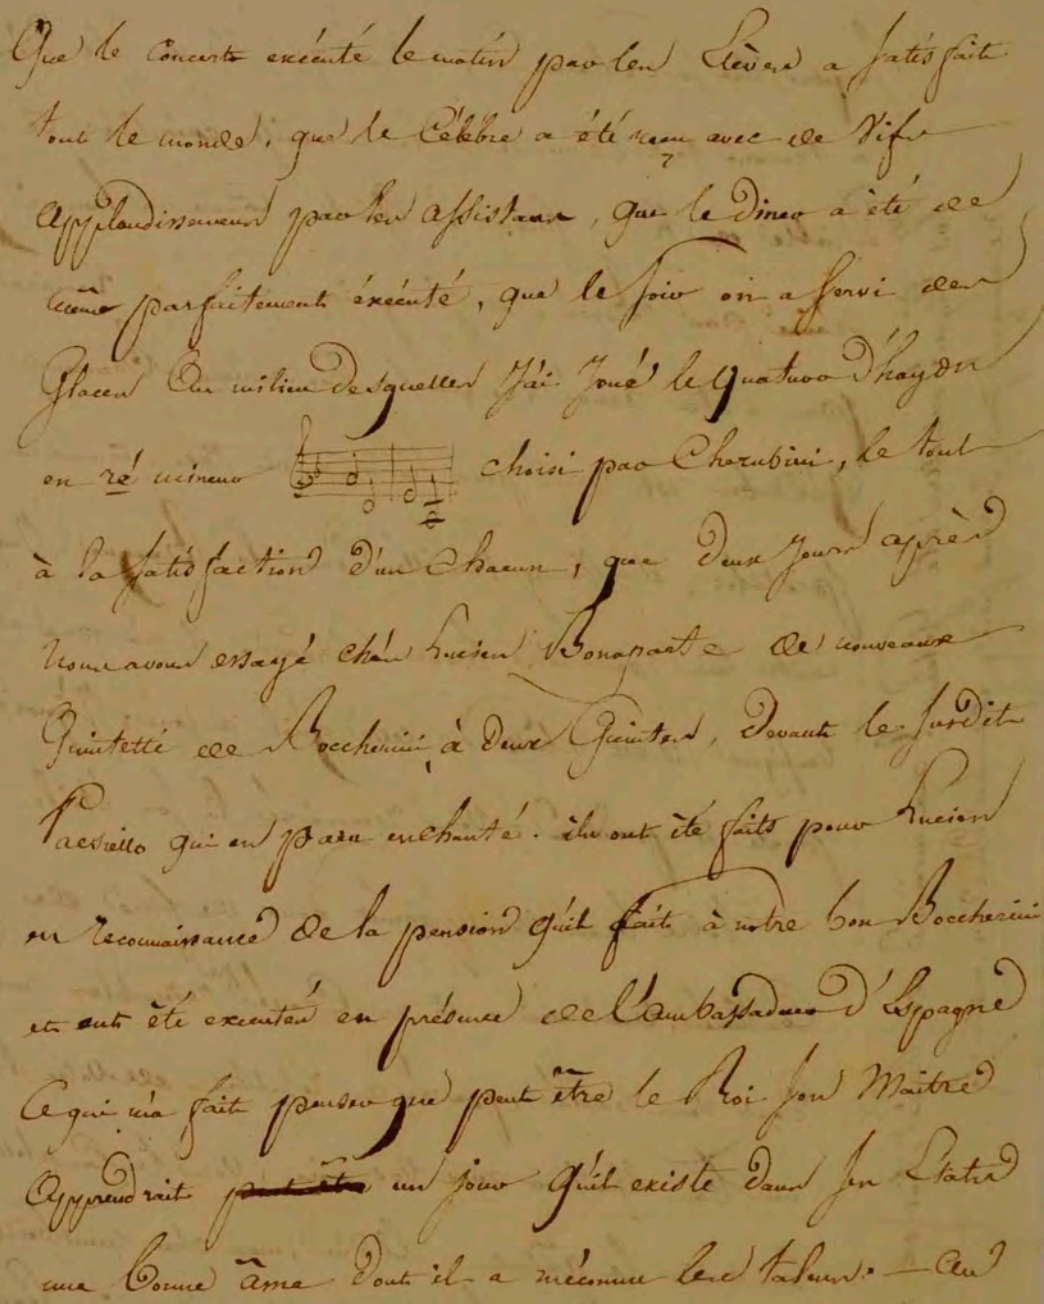 Que le Concert exécuté le matin par les Elèves a satisfait
tout le monde, que le Célèbre a été reçu avec de Vifs
applaudissemens par les assistans, que le Diner a été de
même parfaitement éxécuté, que le soir on a servi des
Glaces Au milieu desquelles J'ai Joué le quatuor D'haydn
en ré mineur choisi par Cherubini, le tout
à la satisfaction d'un Chacun, que deux Jours après
nous avons essayé chés Lucien Bonaparte de nouveaux
Quintetti de Boccherini à deux Quintes, devant le susdit
Paesiello qui en paru enchanté. ils ont été faits pour Lucien
en reconnaissance de la pension qu'il fait à notre bon Boccherini
et ont été executés en présence de L'ambassadeur D'Espagne
Ce qui m'a fait penser que peut être le Roi son Maitre
Apprendrait peut être un jour qu'il existe dans ses Etats
une bonne âme dont il a méconnu les talens. — Au